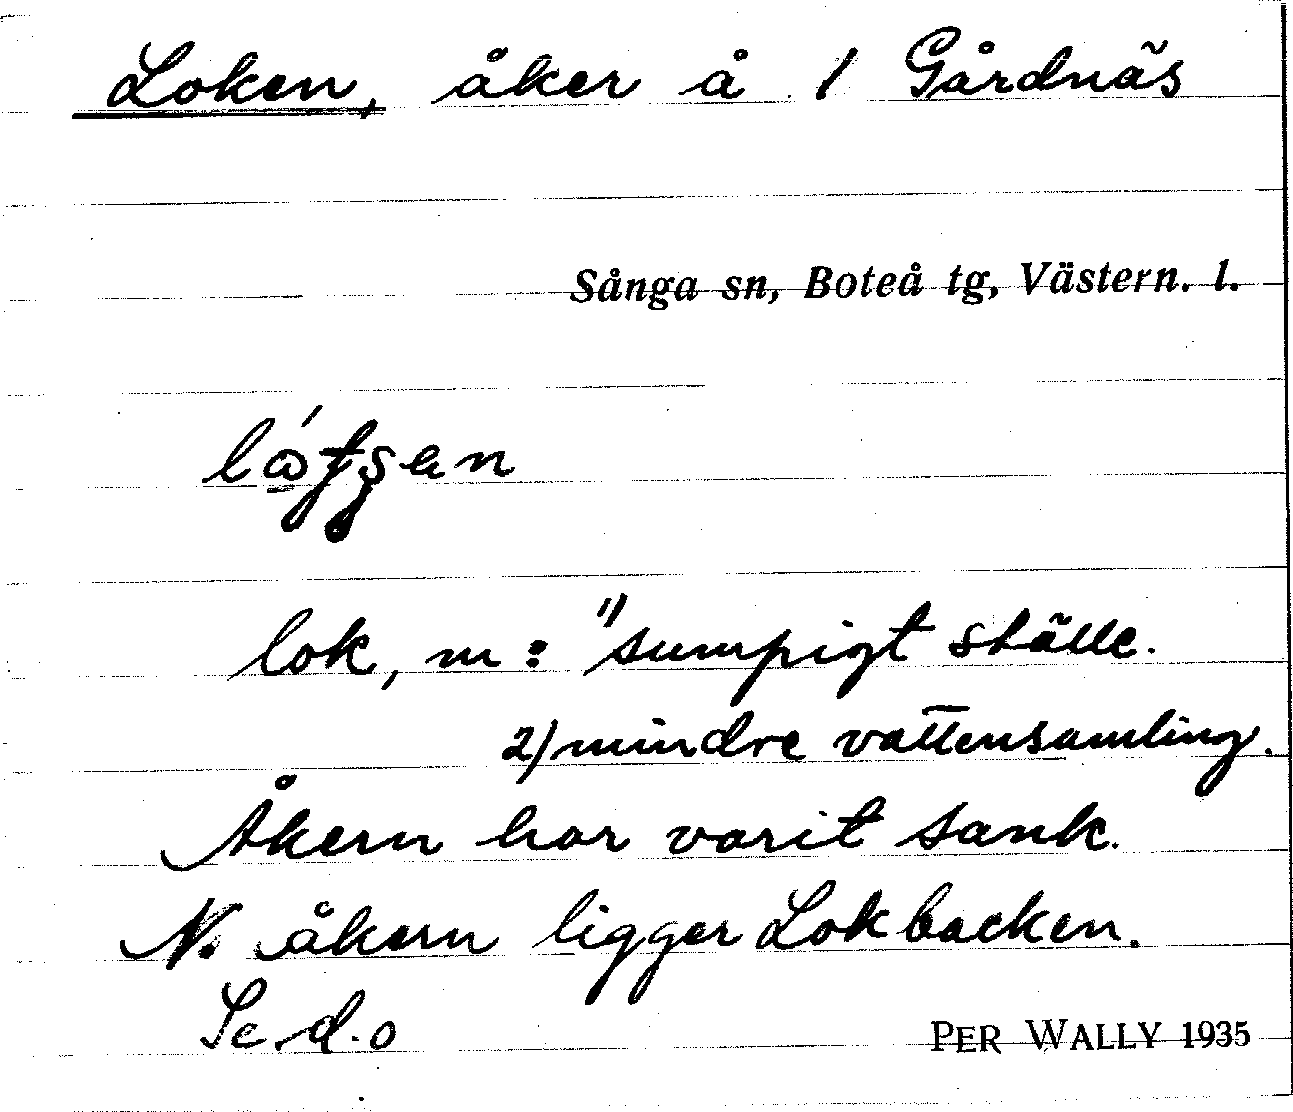 Loken, åker å 1 Gårdnäs
Sånga sn, Boteå tg, Västern. l.
lok, m: "sumpigt ställe.
2) mindre vattensamling.
Åkern har varit sank.
N. åkern ligger Lokbacken.
Se d.o
PER WALLY 1935